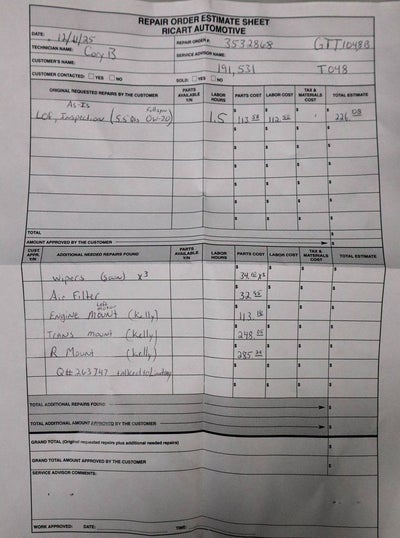 REPAIR ORDER ESTIMATE SHEET
RICART AUTOMOTIVE
DATE: 12/4/25 REPAIR ORDER #: 3532868 GTT1048B
TECHNICIAN NAME: Cory B SERVICE ADVISOR NAME:
CUSTOMER'S NAME: 191,531 T048
CUSTOMER CONTACTED: YES NO SOLD: YES NO
ORIGINAL REQUESTED REPAIRS BY THE CUSTOMER PARTS AVAILABLE Y/N LABOR HOURS PARTS COST LABOR COST TAX & MATERIALS COST TOTAL ESTIMATE
As-Is
LOF, Inspection (5.5 Qts 0W-20) 1.5 $ $ $ $
TOTAL
AMOUNT APPROVED BY THE CUSTOMER $
CUST. APPR. Y/N ADDITIONAL NEEDED REPAIRS FOUND PARTS AVAILABLE Y/N LABOR HOURS PARTS COST LABOR COST TAX & MATERIALS COST TOTAL ESTIMATE
Wipers x3
Air Filter
Engine Mount (Kelly) 113
Trans mount (Kelly) 248
R Mount (Kelly) 285
Q# 263747 talked to
TOTAL ADDITIONAL REPAIRS FOUND $
TOTAL ADDITIONAL AMOUNT APPROVED BY THE CUSTOMER $
GRAND TOTAL (Original requested repairs plus additional needed repairs) $
GRAND TOTAL AMOUNT APPROVED BY THE CUSTOMER $
SERVICE ADVISOR COMMENTS:
WORK APPROVED: DATE: TIME: